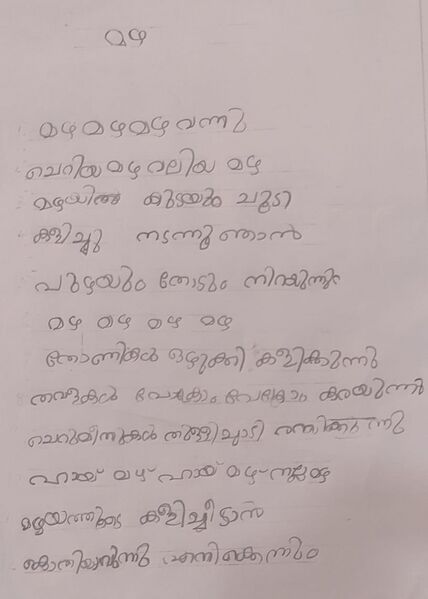 മഴ
മഴ മഴ മഴ വന്നു
ചെറിയ മഴ വലിയ മഴ
മഴയിൽ കുടയും ചൂടി
കളിച്ചു നടന്നു ഞാൻ
പുഴയും തോടും നിറയുന്നു
മഴ മഴ മഴ മഴ
തോണികൾ ഒഴുക്കി കളിക്കുന്നു
തവളകൾ പേക്രോം പേക്രോം കരയുന്നു
ചെറുമീനുകൾ തുള്ളിച്ചാടി രസിക്കുന്നു
ഹായ് മഴ ഹായ് മഴ നല്ല മഴ
മഴയത്തൂടെ കളിച്ചീടാൻ
കൊതിയാവുന്നു എനിക്കെന്നും